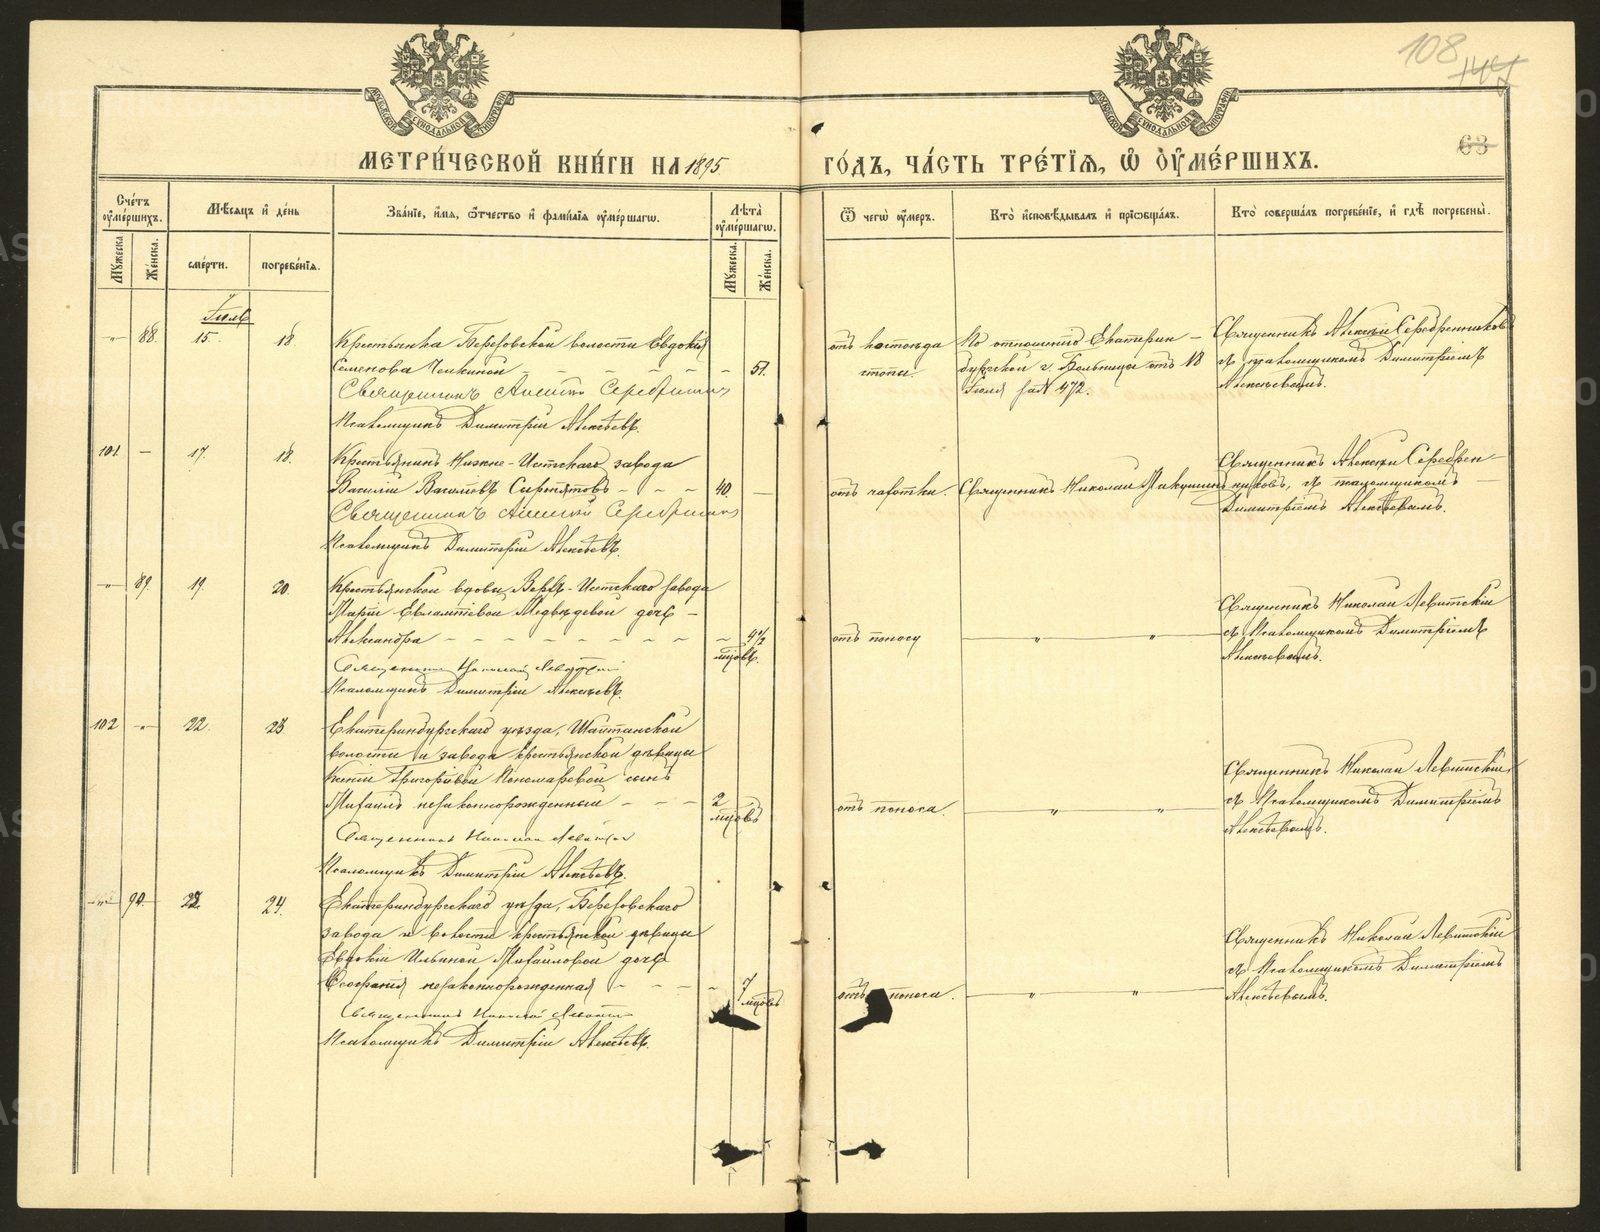 108
147
63
МЕТРИ́ЧЕСКОЙ КНИ́ГИ НА 1895
ГО́ДЪ, ЧА́СТЬ ТРЕ́ТЇѦ, Ѡ ОУ҆МЕ́РШИХЪ.
Сче́тъ оу҆ме́ршихъ.
Мѣ́сѧцъ и҆ де́нь
Зва́нїе, и҆́мѧ, ѻ҆́тчество и҆ фами́лїѧ оу҆ме́ршагѡ.
Лѣ́та оу҆ме́ршагѡ.
Ѿ чегѡ̀ оу҆́меръ.
Кто̀ и҆сповѣ́дывалъ и҆ прїѡбща́лъ.
Кто̀ соверша́лъ погребе́нїе, и҆ гдѣ̀ погребены̀.
Мꙋ́жеска.
Же́нска.
сме́рти.
погребе́нїѧ.
Мꙋ́жеска.
Же́нска.
Іюль
88. 15. 18.
Крестьянка Березовской волости Евдокія
Семенова 51.
Священникъ Алексій Серебренниковъ
Псаломщикъ Димитрій Алексѣевъ.
отъ
стопы.
По отношенію Екатерин-
бургской г. Больницы отъ 18
Іюля за № 472.
Священникъ Алексій Серебренниковъ
съ псаломщикомъ Димитріемъ
Алексѣевымъ.
101. — 17. 18.
Крестьянинъ Нижне-Исетскаго завода
Василій Васильевъ 40. —
Священникъ Алексій Серебренниковъ
Псаломщикъ Димитрій Алексѣевъ.
отъ чахотки.
Священникъ Николай
Священникъ Алексій Серебрен-
никовъ, съ псаломщикомъ
Димитріемъ Алексѣевымъ.
89. 19. 20.
Крестьянской вдовы Верхъ-Исетскаго завода
Марѳы Евлампіевой Медвѣдевой дочь
Александра 4 1/2
мцовъ.
Священникъ Николай Левитскій
Псаломщикъ Димитрій Алексѣевъ.
отъ поносу
Священникъ Николай Левитскій
съ Псаломщикомъ Димитріемъ
Алексѣевымъ.
102 22. 23.
Екатеринбургскаго уѣзда, Шайтанской
волости и завода крестьянской дѣвицы
Ксеніи Григорьевой Пономаревой сынъ
Михаилъ незаконнорожденный 2
мцовъ
Священникъ Николай Левитскій
Псаломщикъ Димитрій Алексѣевъ.
отъ поноса.
Священникъ Николай Левитскій
съ Псаломщикомъ Димитріемъ
Алексѣевымъ.
90. 23. 24.
Екатеринбургскаго уѣзда, Березовскаго
завода и волости крестьянской дѣвицы
Евдокіи Ильиной Михайловой дочь
незаконнорожденная 7
мцовъ
Священникъ Николай Левитскій
Псаломщикъ Димитрій Алексѣевъ.
отъ поноса.
Священникъ Николай Левитскій
съ Псаломщикомъ Димитріемъ
Алексѣевымъ.